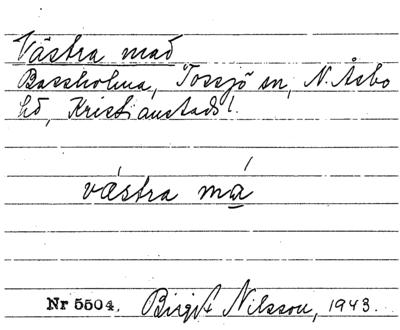 Västra mad
Bassholma, Tossjö sn, N. Åsbo
hd, Kristianstads l.
västra má
Nr 5504. Birgit Nilsson, 1943.